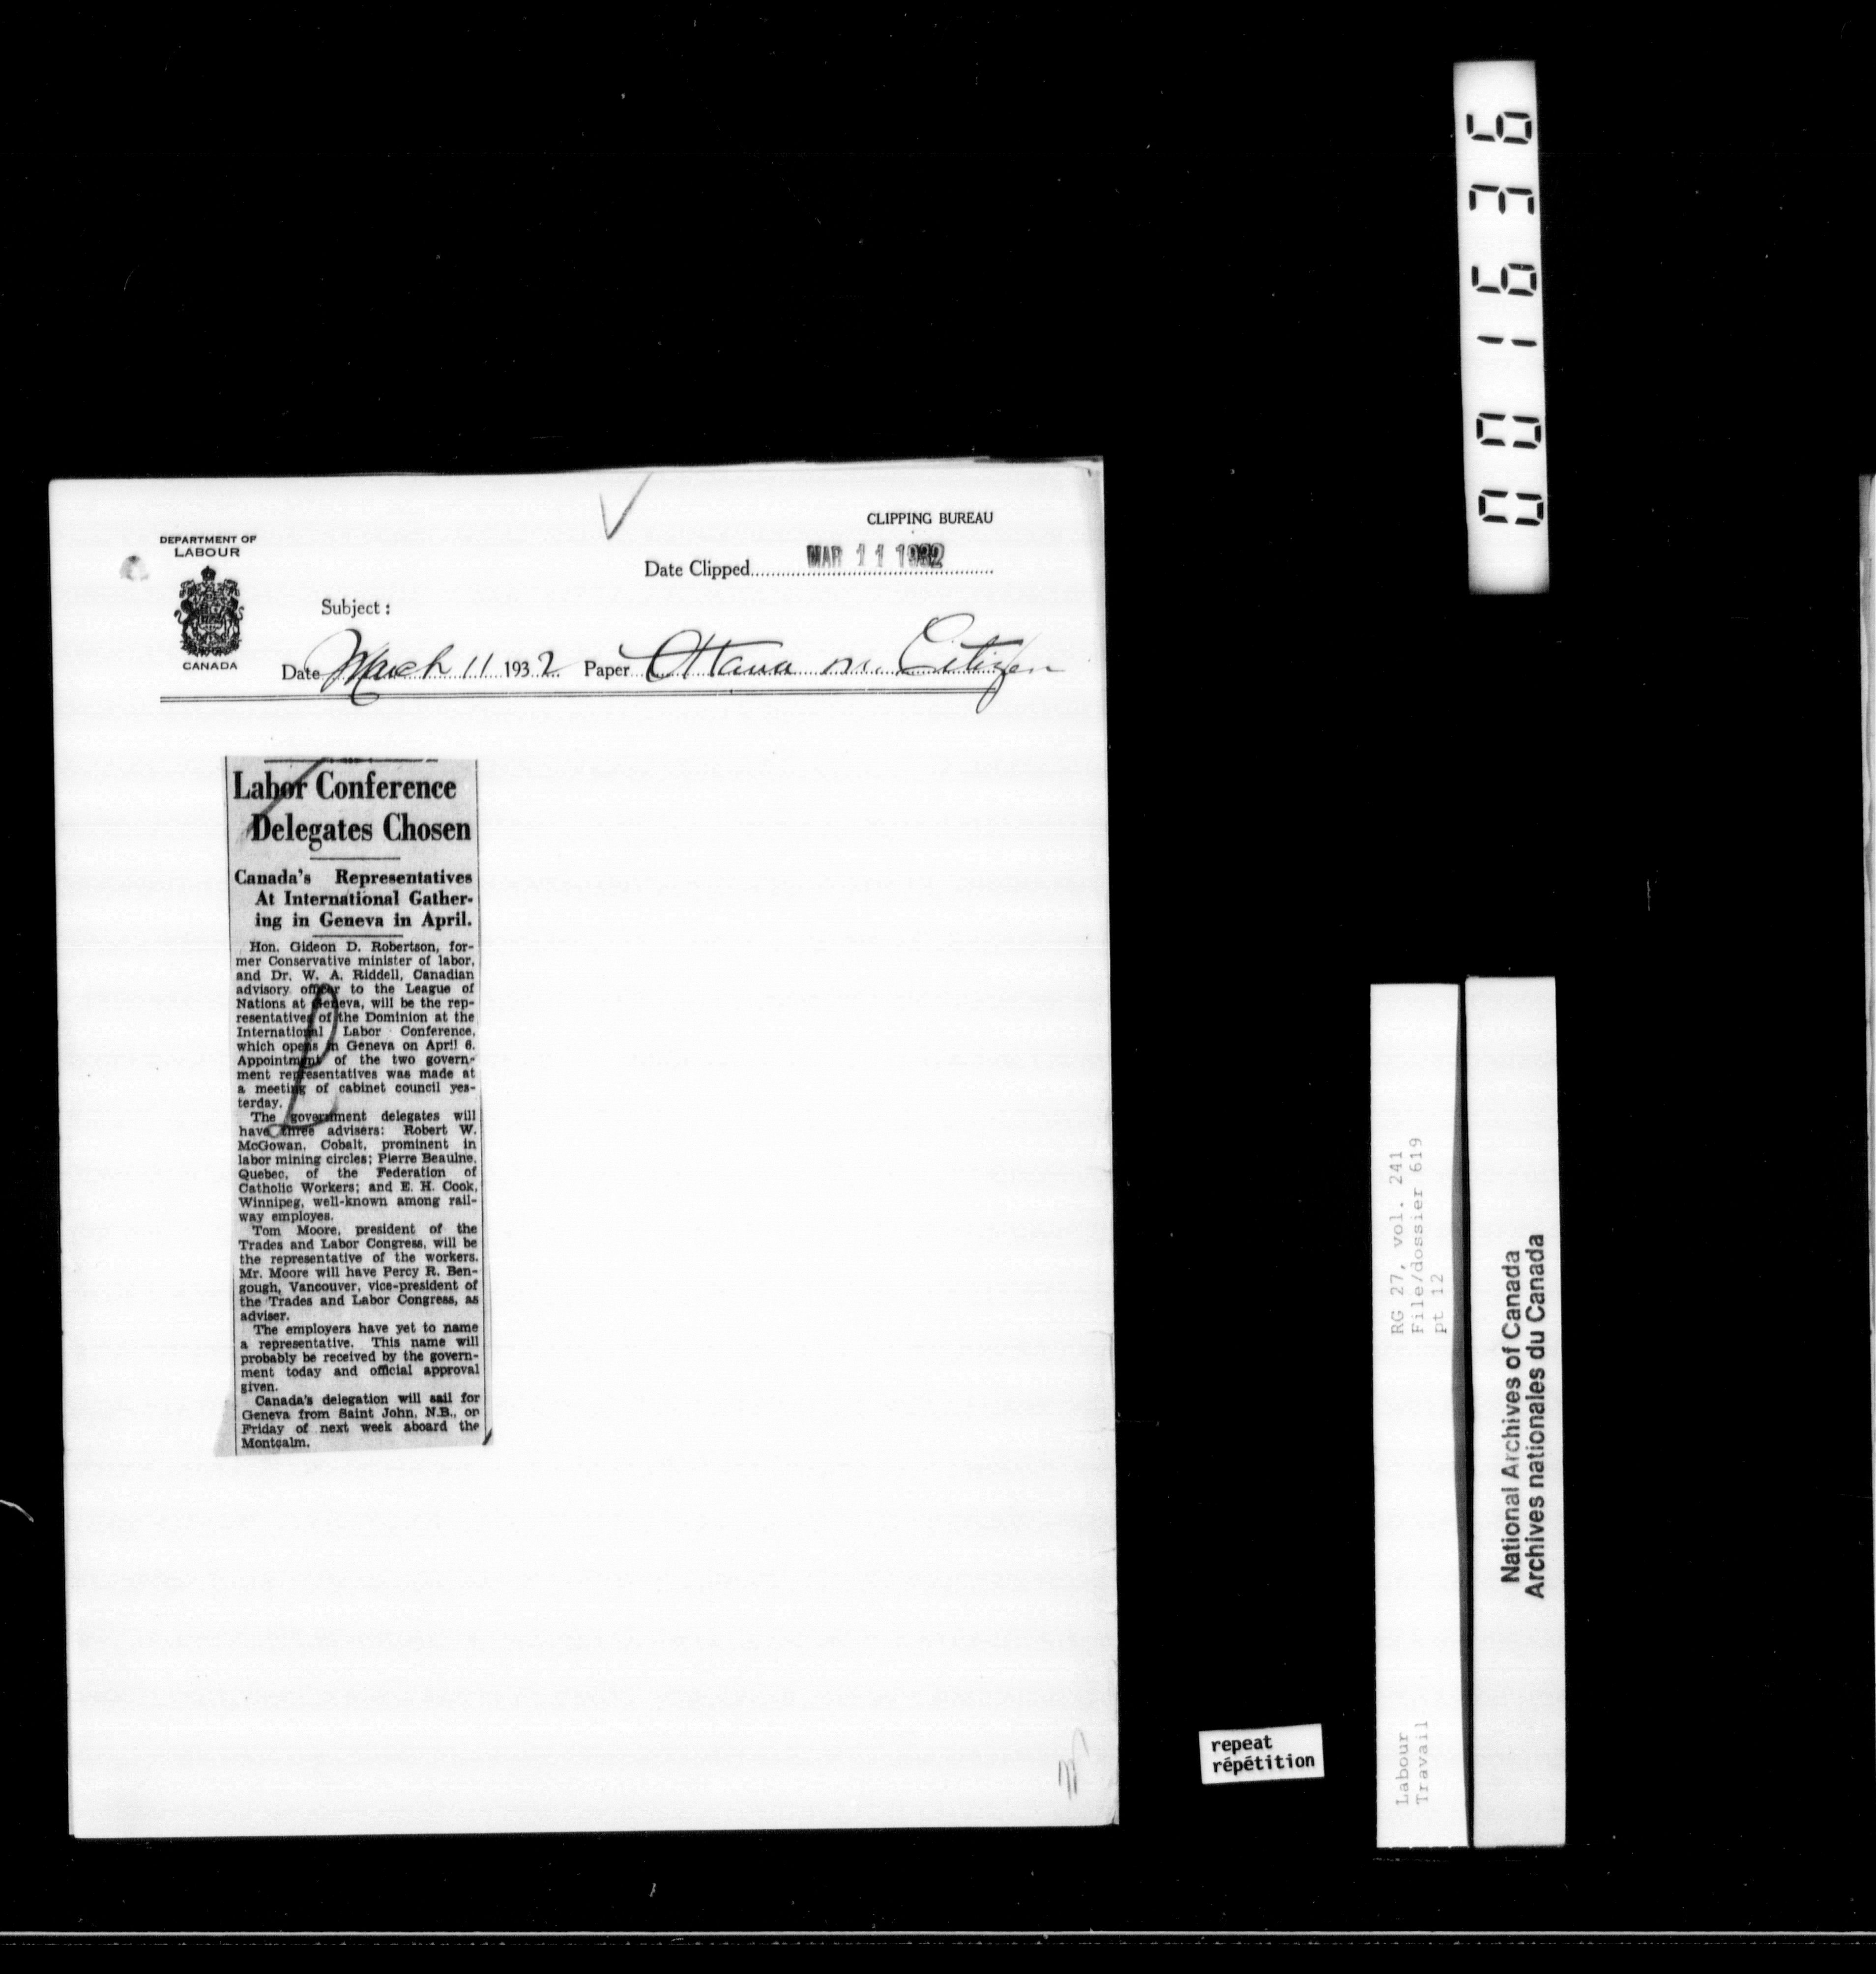 CLIPPING BUREAU
DEPARTMENT OF
LABOUR
CANADA
Date Clipped MAR 11 1932
Subject:
Date March 11 1932 Paper Ottawa m. Citizen
Labor Conference
Delegates Chosen
Canada's Representatives
At International Gather-
ing in Geneva in April.
Hon. Gideon D. Robertson, for-
mer Conservative minister of labor,
and Dr. W. A. Riddell, Canadian
advisory officer to the League of
Nations at Geneva, will be the rep-
resentatives of the Dominion at the
International Labor Conference,
which opens in Geneva on April 6.
Appointment of the two govern-
ment representatives was made at
a meeting of cabinet council yes-
terday.
The government delegates will
have three advisers: Robert W.
McGowan, Cobalt, prominent in
labor mining circles; Pierre Beaulne,
Quebec, of the Federation of
Catholic Workers; and E. H. Cook,
Winnipeg, well-known among rail-
way employes.
Tom Moore, president of the
Trades and Labor Congress, will be
the representative of the workers.
Mr. Moore will have Percy R. Ben-
gough, Vancouver, vice-president of
the Trades and Labor Congress, as
adviser.
The employers have yet to name
a representative. This name will
probably be received by the govern-
ment today and official approval
given.
Canada's delegation will sail for
Geneva from Saint John, N.B., on
Friday of next week aboard the
Montcalm.
001636
RG 27, vol. 241
File/dossier 619
pt 12
Labour
Travail
National Archives of Canada
Archives nationales du Canada
repeat
répétition